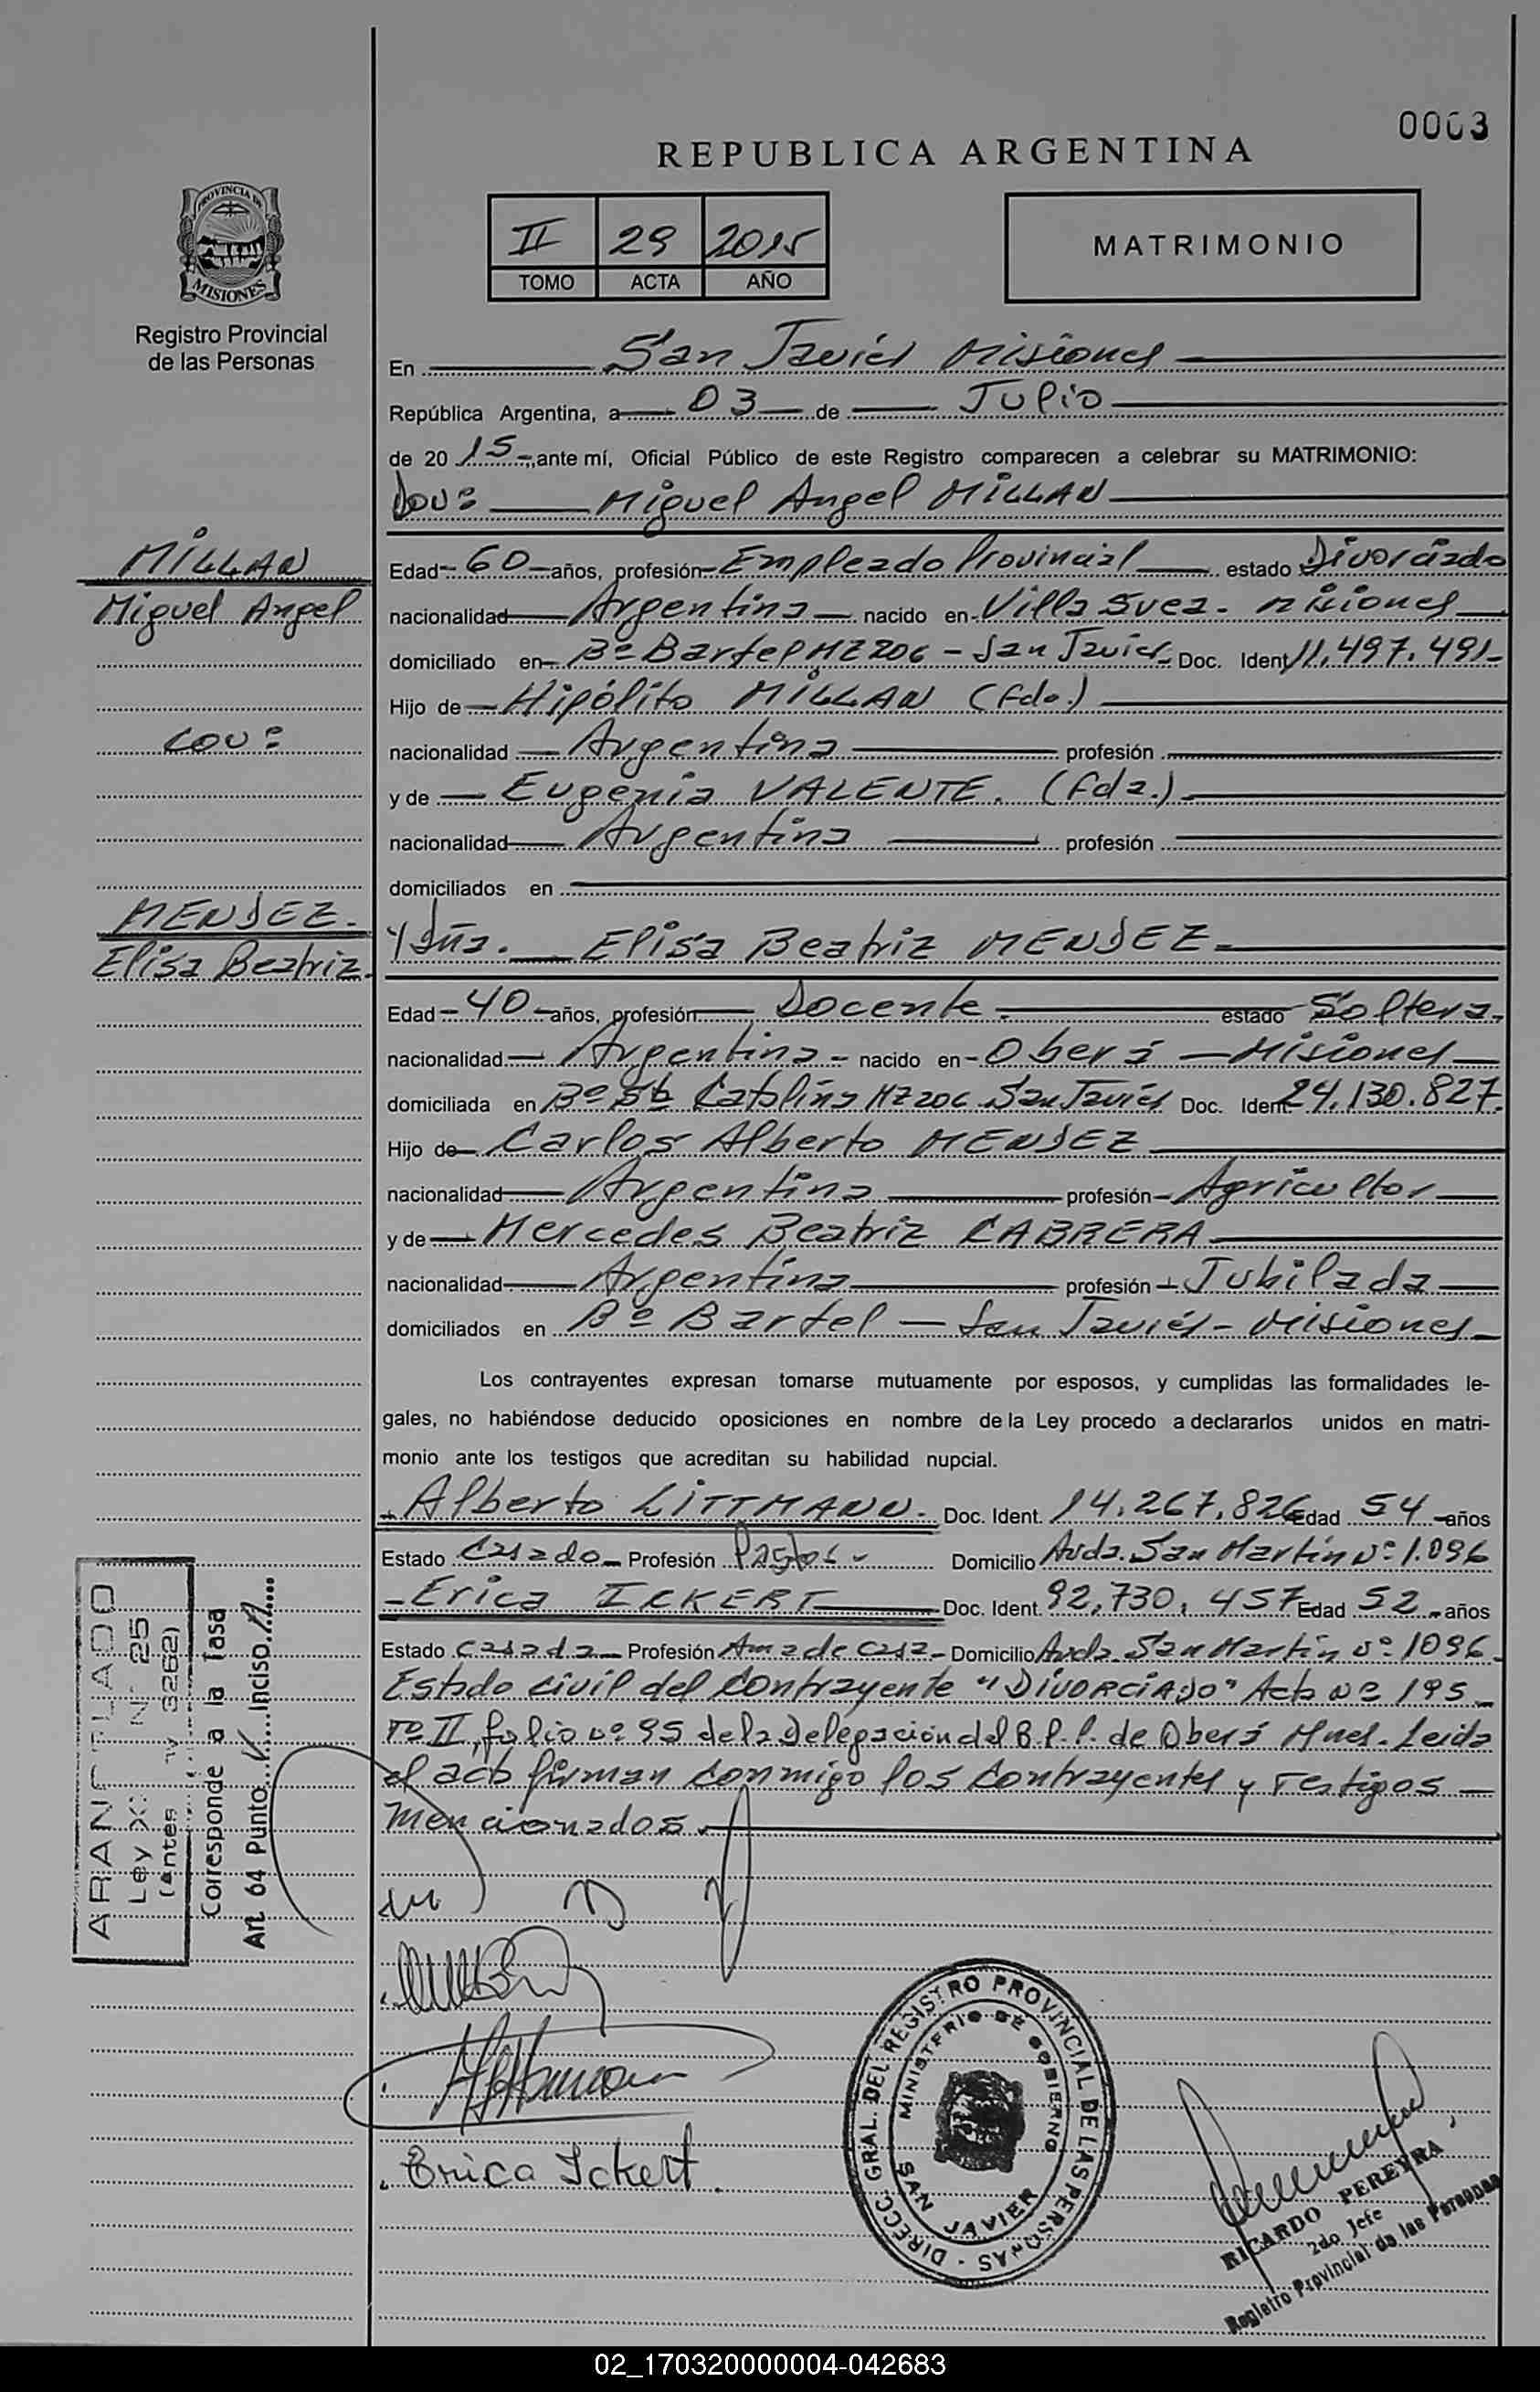 0003
REPUBLICA ARGENTINA
PROVINCIA DE
MISIONES
Registro Provincial
de las Personas
II 29 2015
TOMO ACTA AÑO
MATRIMONIO
En San Javier Misiones
República Argentina, a 03 de Julio
de 20 15, ante mí, Oficial Público de este Registro comparecen a celebrar su MATRIMONIO:
Don: Miguel Angel MILLAN
MILLAN
Miguel Angel
con:
MENDEZ.
Elisa Beatriz.
Edad 60 años, profesión Empleado Provincial estado Divorciado
nacionalidad Argentina nacido en Villa Svea. Misiones
domiciliado en Bº Bartel MZ 206 - San Javier Doc. Ident 11.497.491-
Hijo de Hipólito MILLAN (fdo.)
nacionalidad Argentina profesión
y de Eugenia VALENTE. (fda.)
nacionalidad Argentina profesión
domiciliados en
Y Dña. Elisa Beatriz MENDEZ
Edad 40 años, profesión Docente estado Soltera.
nacionalidad Argentina - nacido en Oberá - Misiones
domiciliada en Bº Sta Catalina MZ 206 San Javier Doc. Ident 24.130.827.
Hijo de Carlos Alberto MENDEZ
nacionalidad Argentina profesión Agricultor
y de Mercedes Beatriz CABRERA
nacionalidad Argentina profesión Jubilada
domiciliados en Bº Bartel - San Javier - Misiones
Los contrayentes expresan tomarse mutuamente por esposos, y cumplidas las formalidades le-
gales, no habiéndose deducido oposiciones en nombre de la Ley procedo a declararlos unidos en matri-
monio ante los testigos que acreditan su habilidad nupcial.
Alberto LITTMANN. Doc. Ident. 14.267.826 Edad 54 años
Estado Casado Profesión Pastor Domicilio Avda. San Martín Nº 1.096
Erica ICKERT Doc. Ident. 92.730.457 Edad 52 años
Estado Casada Profesión Ama de casa Domicilio Avda San Martín nº 1096.
Estado civil del contrayente "DIVORCIADO" Acta Nº 195
Tº II, folio nº 95 de la Delegación del R.P.P. de Oberá Mnes. Leida
el acta firman conmigo los contrayentes y testigos
mencionados.
ARANCELADO
Ley Nº 25
(antes 3262)
Corresponde a la Tasa
Art. 64 Punto V Inciso
Erica Ickert.
DIRECC. GRAL. DEL REGISTRO PROVINCIAL DE LAS PERSONAS
MINISTERIO DE GOBIERNO
SAN JAVIER
RICARDO PEREYRA
2do Jefe
Registro Provincial de las Personas
02_170320000004-042683